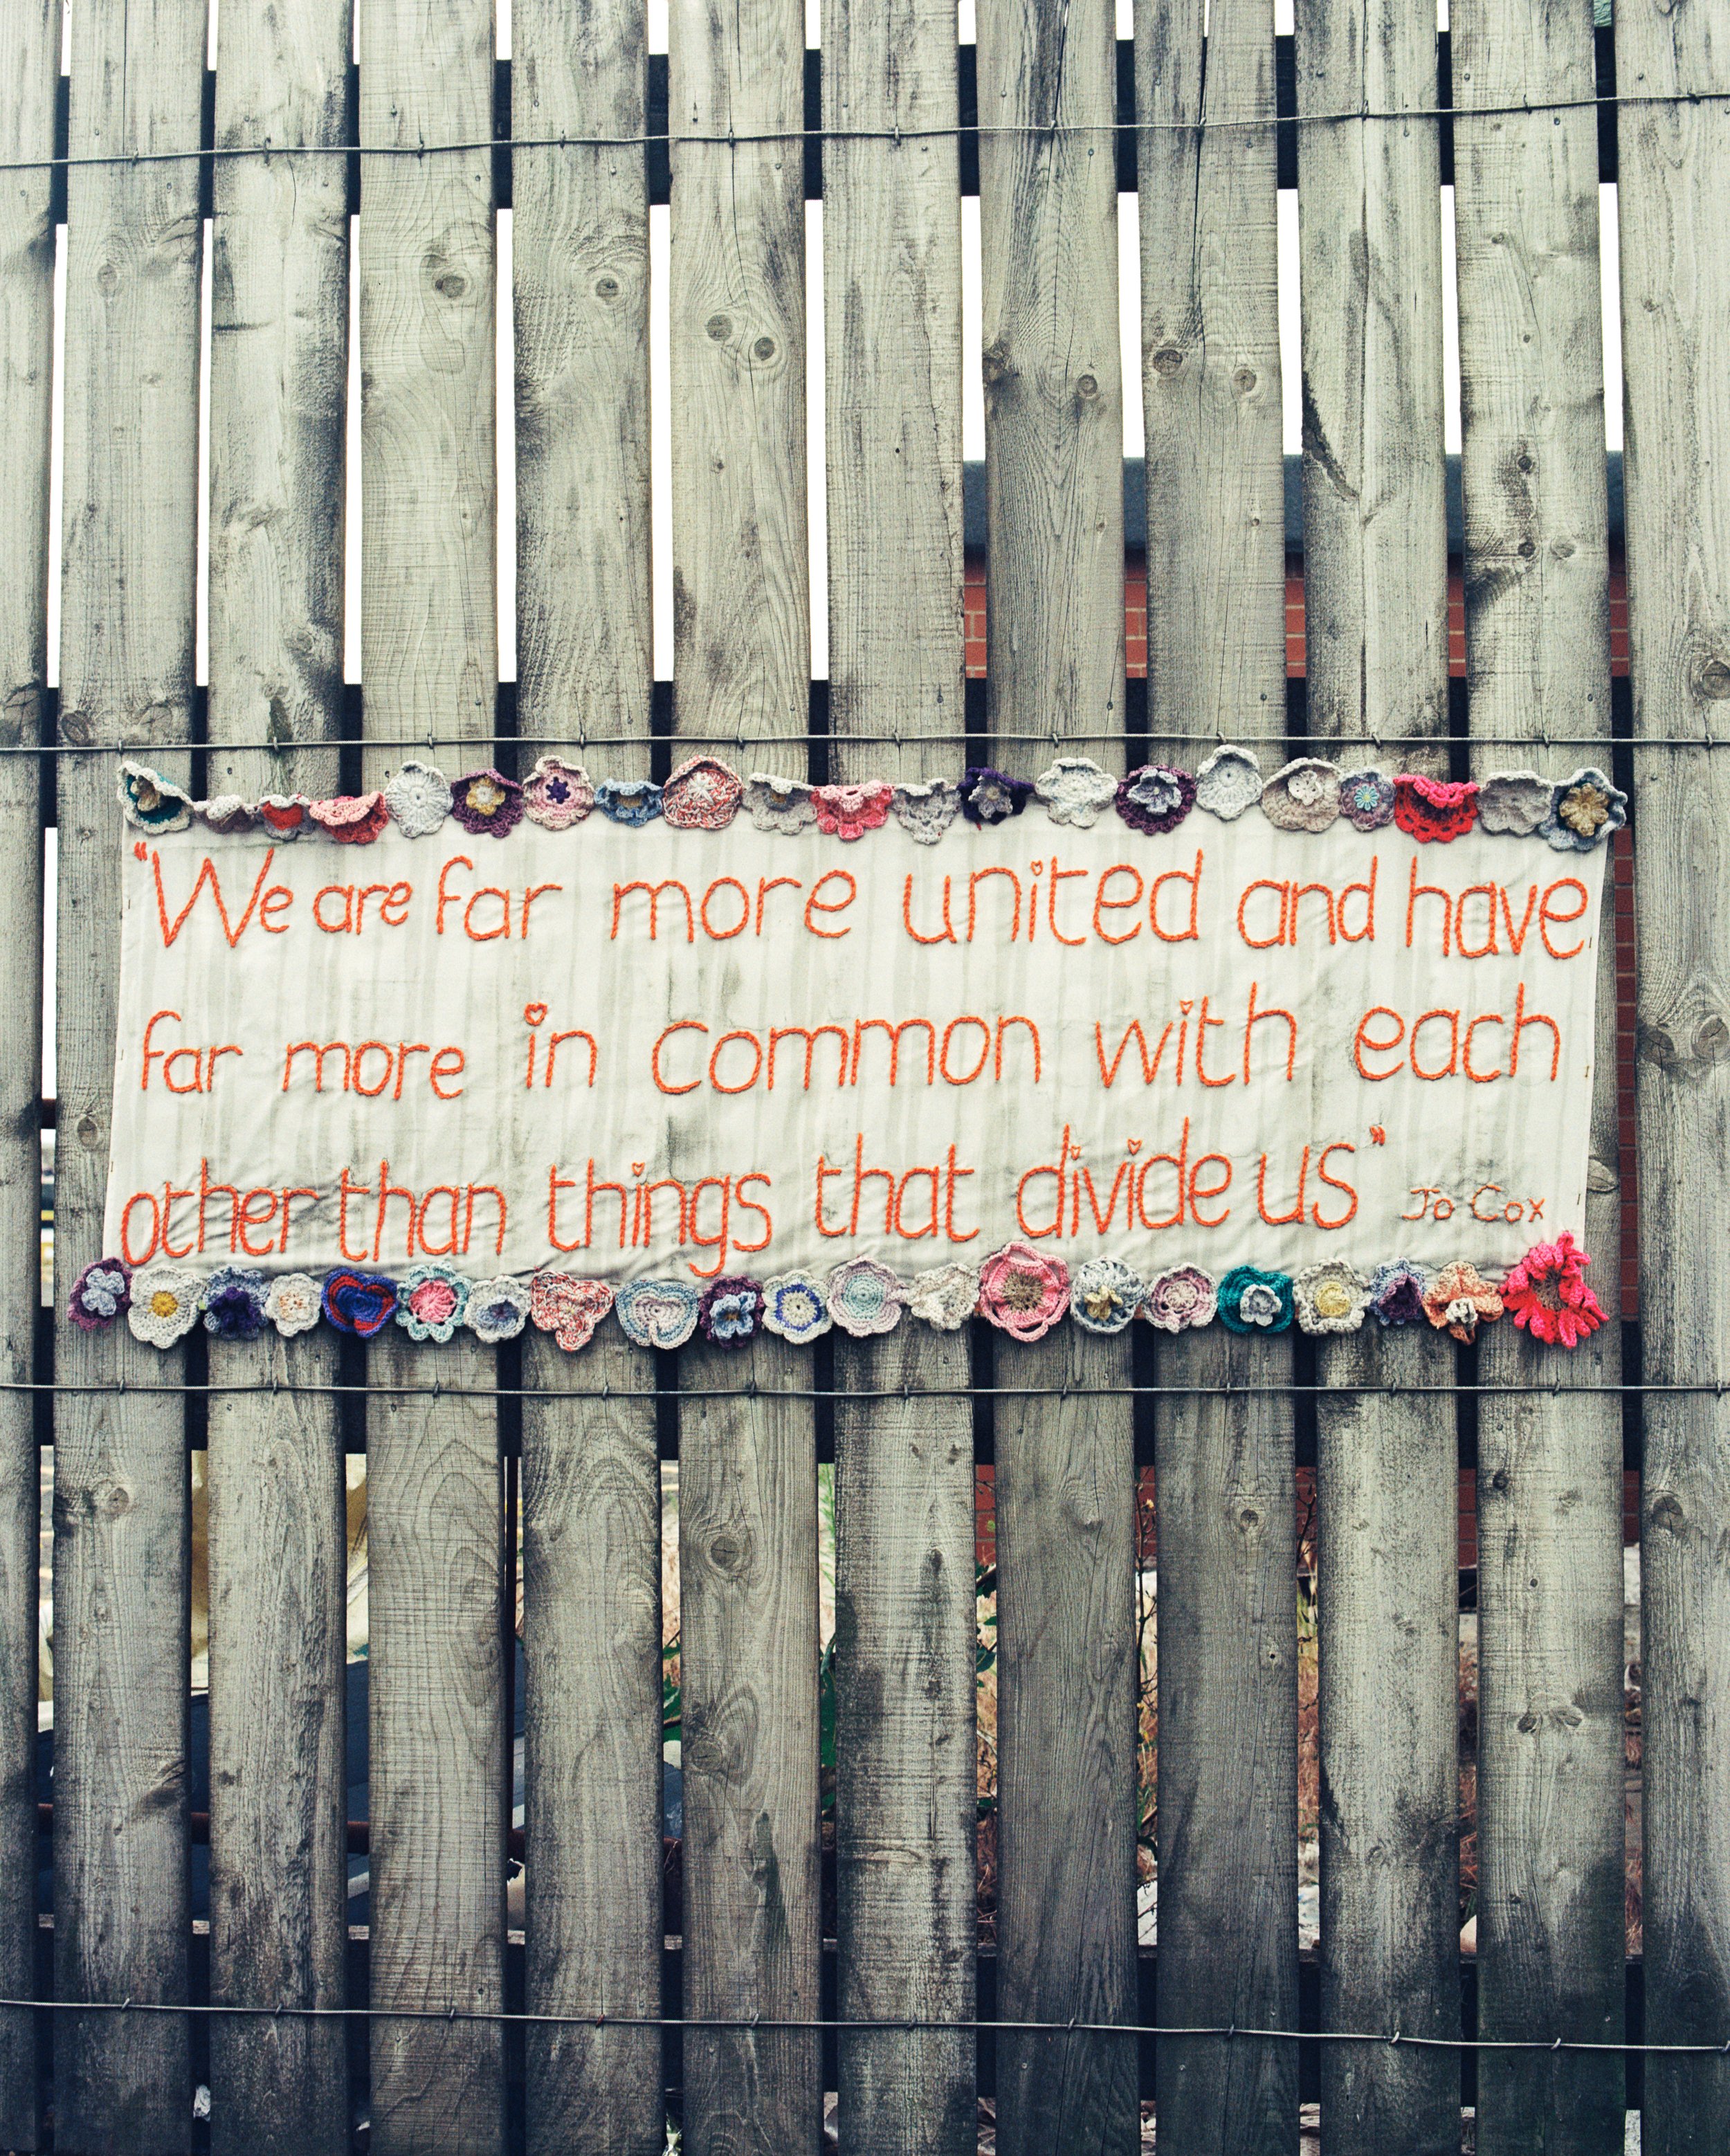 "We are far more united and have
far more in common with each
other than things that divide us" Jo Cox